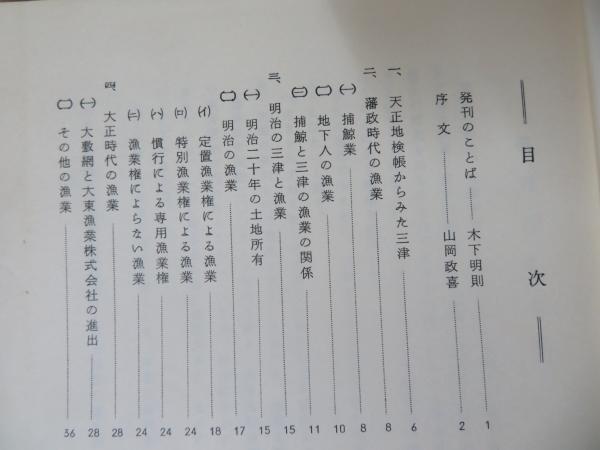 目次
発刊のことば 木下明則 1
序文 山岡政喜 2
一、天正地検帳からみた三津 6
二、藩政時代の漁業 8
㈠ 捕鯨業 8
㈡ 地下人の漁業 10
㈢ 捕鯨と三津の漁業の関係 11
三、明治の三津と漁業 15
㈠ 明治二十年の土地所有 15
㈡ 明治の漁業 17
(イ) 定置漁業権による漁業 18
(ロ) 特別漁業権による漁業 24
(ハ) 慣行による専用漁業権 24
(ニ) 漁業権によらない漁業 24
四、大正時代の漁業 28
㈠ 大敷網と大東漁業株式会社の進出 28
㈡ その他の漁業 36